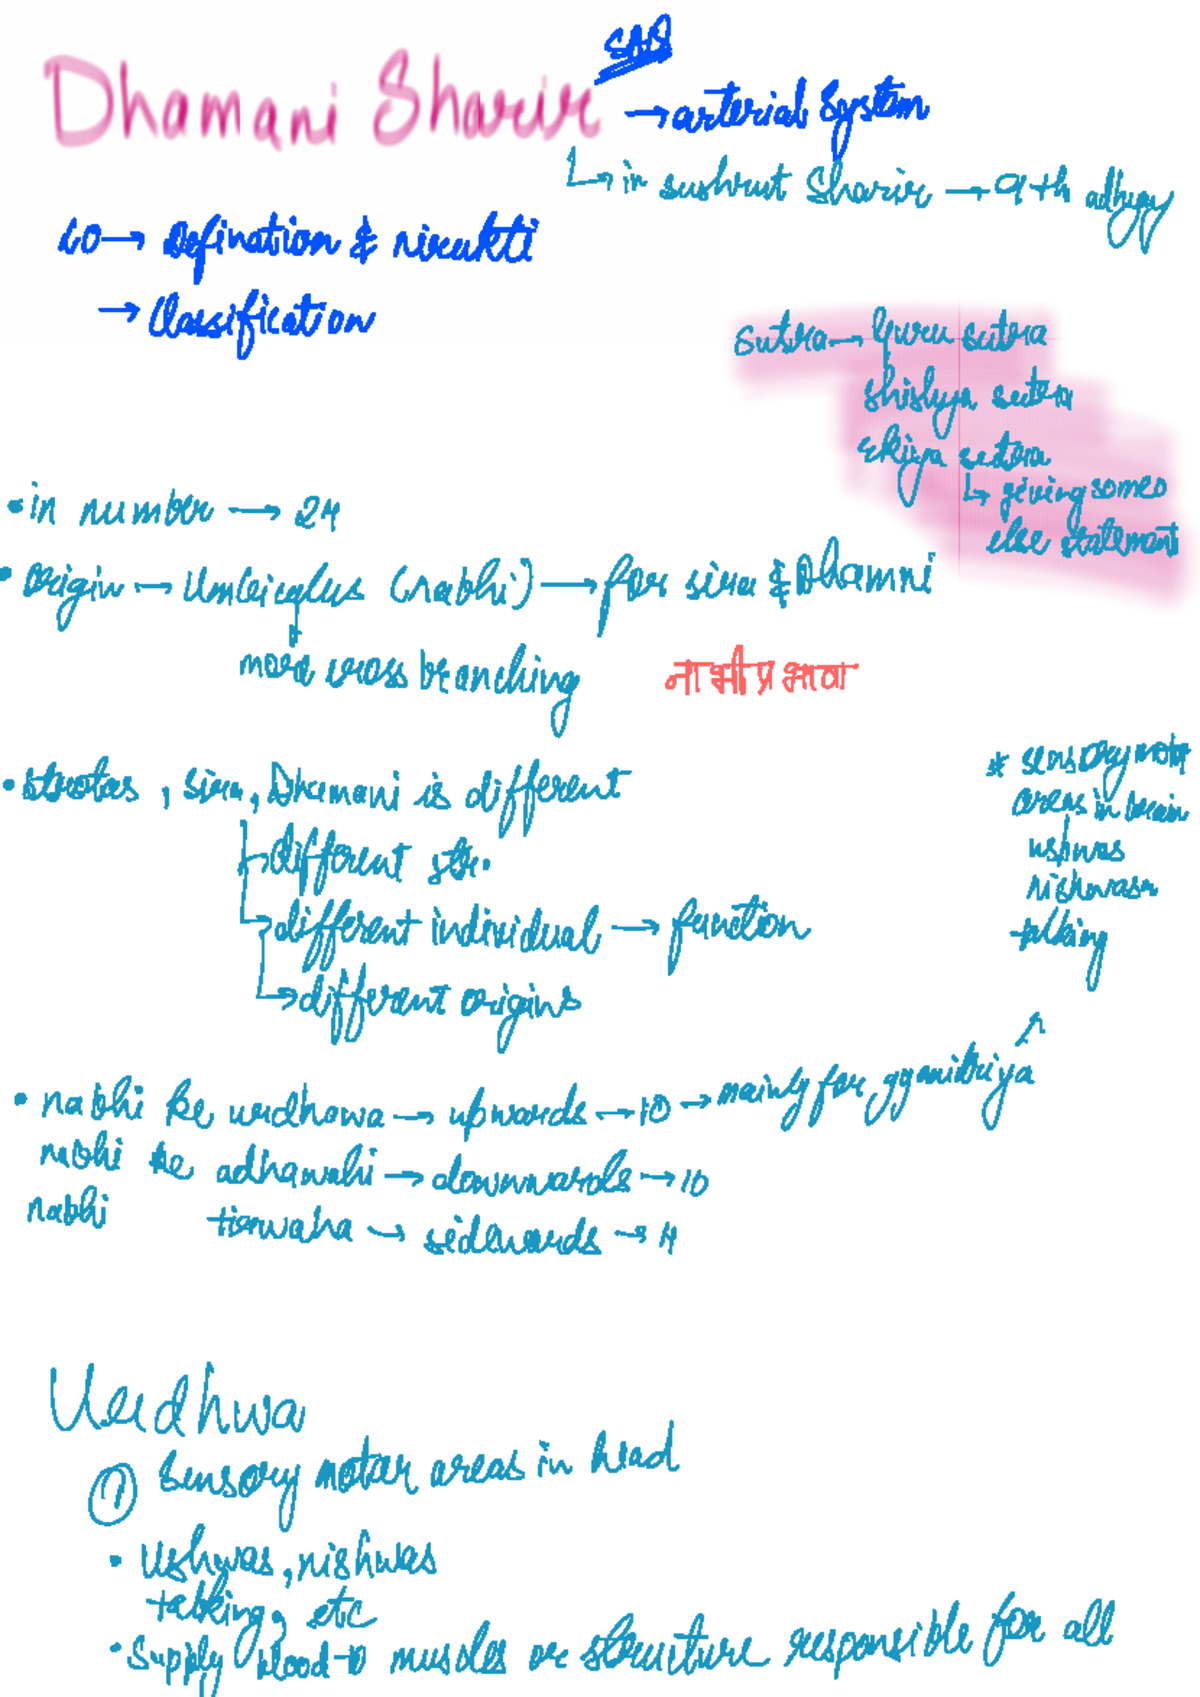 Dhamani Sharir
SAQ
→ arterial System
↳ in sushrut Sharir → 9th adhyay
LO → Defination & nirukti
→ Classification
Sutra → Guru sutra
shishya sutra
ekiya sutra
↳ giving someo
else statement
• in number → 24
• Origin → Umbicalus (nabhi) → for sira & Dhamni
more cross branching
नाभीप्रभवा
• strotas, sira, Dhamani is different
different str.
→ different individual → function
→ different origins
* sensory moto
areas in brain
ushwas
nishwasa
talking
• nabhi ke urdhawa → upwards → 10 → mainly for gyanidriya
nabhi ke adhawahi → downwards → 10
nabhi tirwaha → sidewards → 4
Urdhwa
① Sensory motar areas in head
• Ushwas, nishwas
talking, etc
• Supply blood to muscles or structure responsible for all